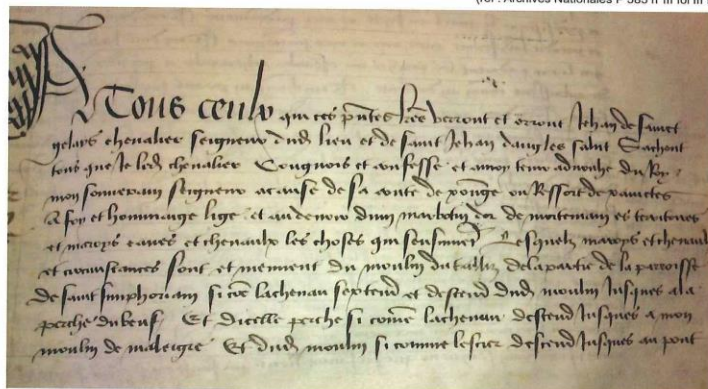 (réf : Archives Nationales P 585 n°
A Tous ceulx qui ces pntes lres verront et orront Jehan de sainct
gelays chevalier seigneur dud lieu et de saint Jehan dangles salut Sachent
tous que Je led chevalier Congnois et confesse et advoy tenir advouhe du Roy
mon souverain seigneur a cause de sa conte de xainge ou Ressort de xainctes
A foy et hommaige lige et au devoir dun marbotin dor de mortemain es terroirs
et maroys eaues et chenaulx les choses qui sensuivent Lesquelz maroys et chenaulx
et circunstances sont et meuvent du moulin de la partie de la parroisse
de saint simphorian si coe lachenau sextend et descend dud moulin Jusques a la
perche dubeuf Et dicelle perche si come lachenau descend Jusques a mon
moulin de maleigre Et dud moulin si comme lestier descend Jusques au pont